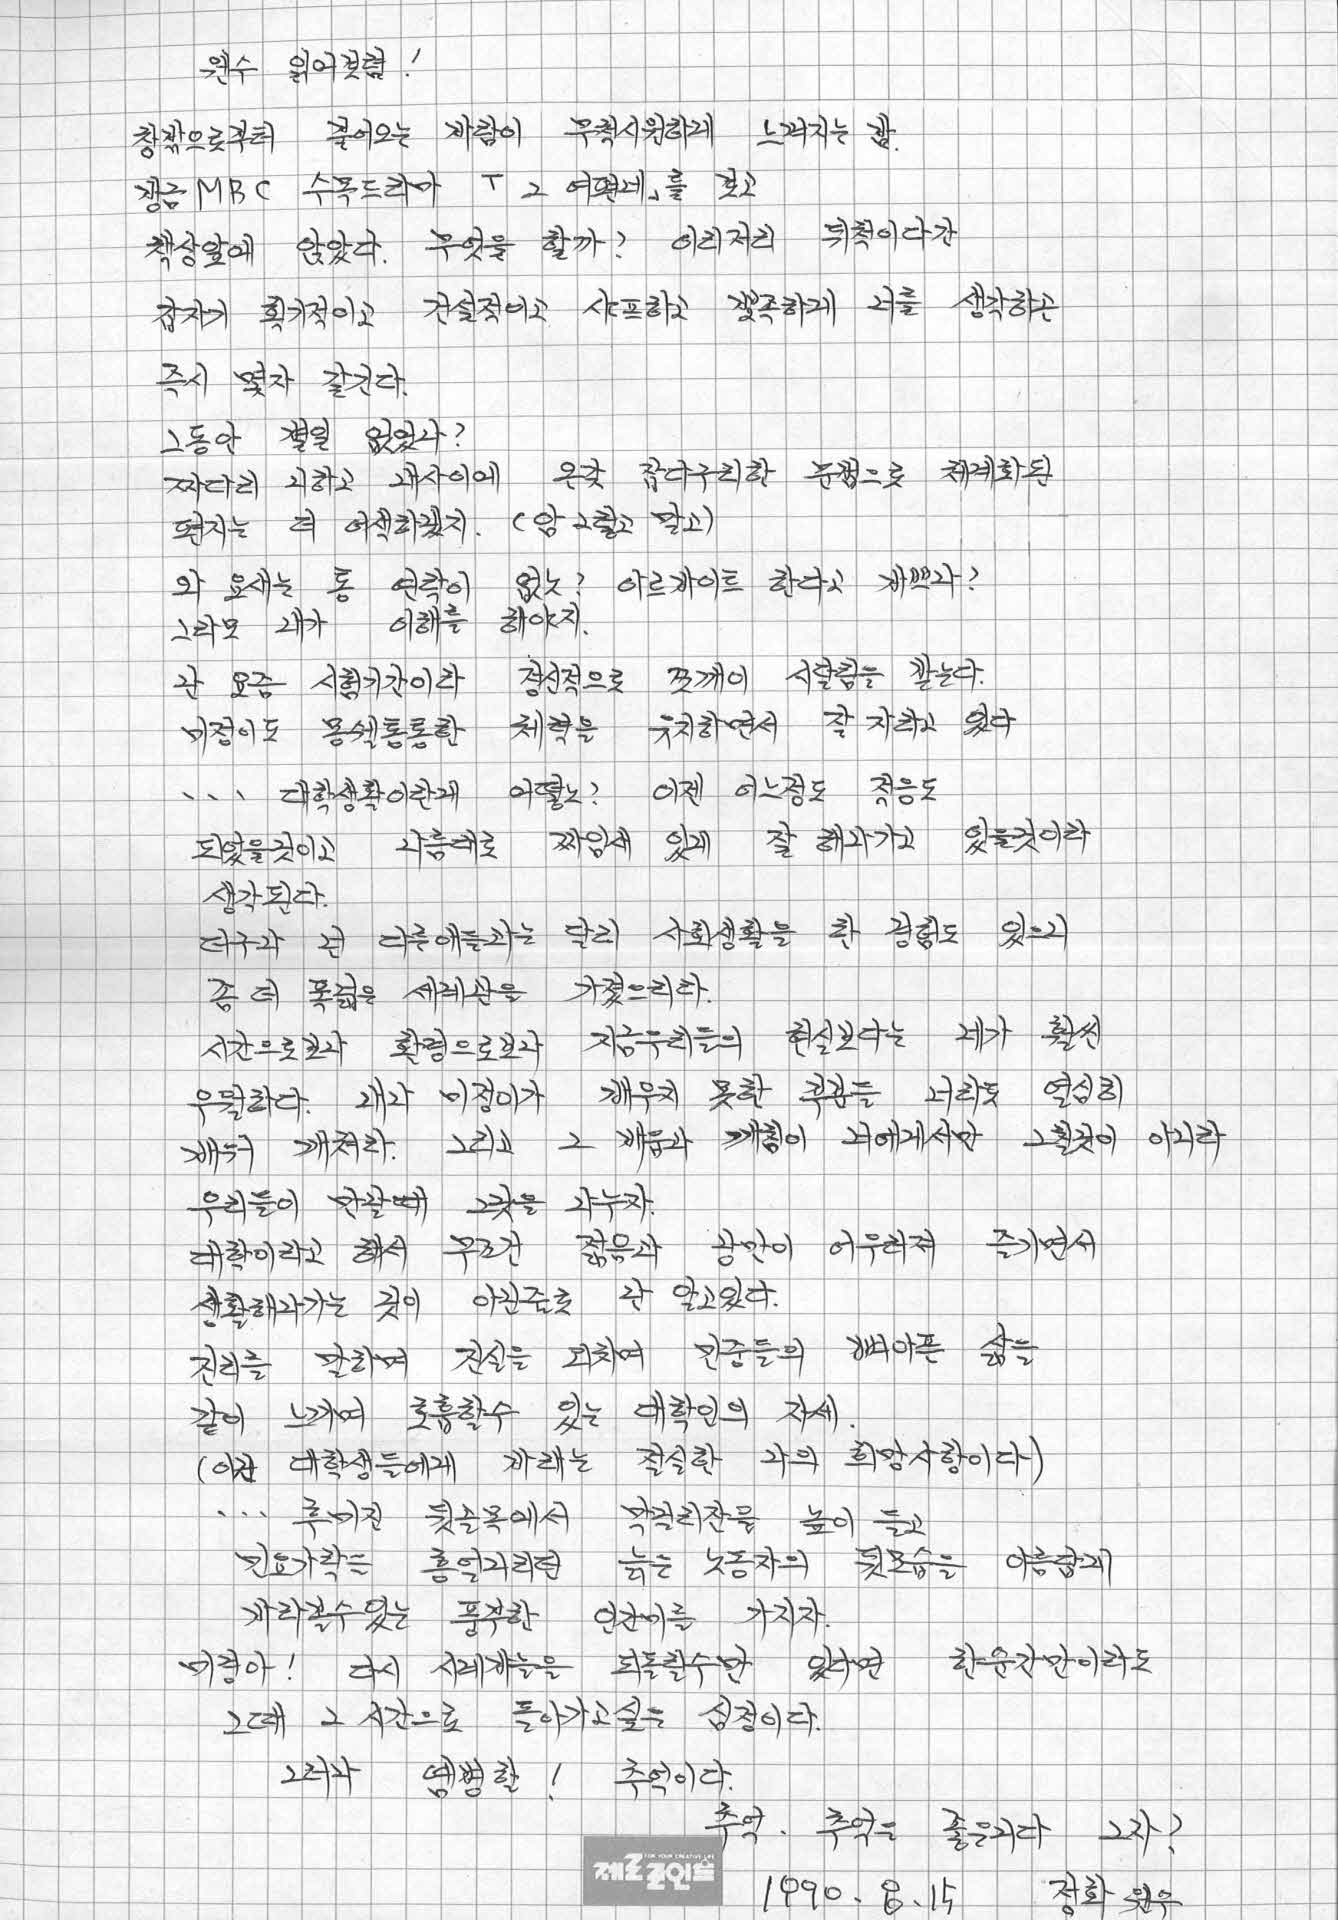 원수 읽어보렴!
창밖으로부터 불어오는 바람이 무척시원하게 느껴지는 밤.
방금 MBC 수목드라마 「그 여편네」를 보고
책상앞에 앉았다. 무엇을 할까? 이리저리 뒤척이다간
갑자기 획기적이고 건설적이고 샤프하고 깔쭉하게 너를 생각하곤
즉시 몇자 갈긴다.
그동안 별일 없었나?
짜다리 니하고 내사이에 온갖 잡다구리한 문법으로 체계화된
편지는 더 어색하겠지. (암 그렇고 말고)
와 요새는 통 연락이 없노? 아르바이트 한다고 바쁘나?
그라모 내가 이해를 해야지.
난 요즘 시험기간이라 정신적으로 쪼깨이 시달림을 받는다.
미정이도 몽실통통한 체력을 유지하면서 잘 지내고 있다
... 대학생활이란게 어떻노? 이젠 어느정도 적응도
되었을것이고 나름대로 짜임새 있게 잘 해나가고 있을것이라
생각된다.
더구나 넌 다른애들과는 달리 사회생활을 한 경험도 있으니
좀 더 폭넓은 세계관을 가졌으리라.
시간으로보나 환경으로보나 지금우리들의 현실보다는 네가 훨씬
우월하다. 내나 미정이가 배우지 못한 부분들 너라도 열심히
배우고 깨쳐라. 그리고 그 배움과 깨침이 너에게서만 그칠것이 아니라
우리들이 만날때 그것을 나누자.
대학이라고 해서 무조건 젊음과 낭만이 어우러져 즐기면서
생활해나가는 곳이 아닌줄로 난 알고있다.
진리를 말하며 진실을 외치며 민중들의 뼈아픈 삶을
같이 느끼며 호흡할수 있는 대학인의 자세.
(이건 대학생들에게 바라는 절실한 나의 희망사항이다)
... 후미진 뒷골목에서 막걸리잔을 높이 들고
민요가락을 흥얼거리던 늙은 노동자의 뒷모습을 아름답게
바라볼수있는 풍족한 인간미를 가지자.
미정아! 다시 시계바늘을 되돌릴수만 있다면 한순간만이라도
그때 그 시간으로 돌아가고싶은 심정이다.
그러나 염병할! 추억이다.
추억. 추억은 좋은거다 그자?
1990. 8. 15 정화
FOR YOUR CREATIVE LIFE
제로포인트